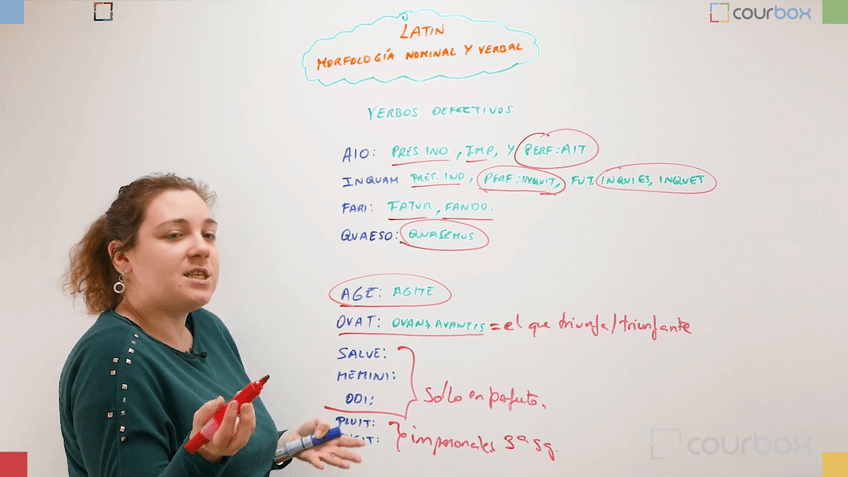 courbox
LATIN
MORFOLOGÍA NOMINAL Y VERBAL
VERBOS DEFECTIVOS
AIO: PRES IND, IMP, Y PERF: AIT
INQUAM PRES. IND, PERF: INQUIT, FUT. INQUIES, INQUET
FARI: FATUR, FANDO.
QUAESO: QUAESEMUS
AGE: AGITE
OVAT: OVANS, AVANTIS = el que triunfa/triunfante
SALVE:
MEMINI:
ODI:
Sólo en perfecto.
PLUIT:
impersonales 3ª sg.
courbox